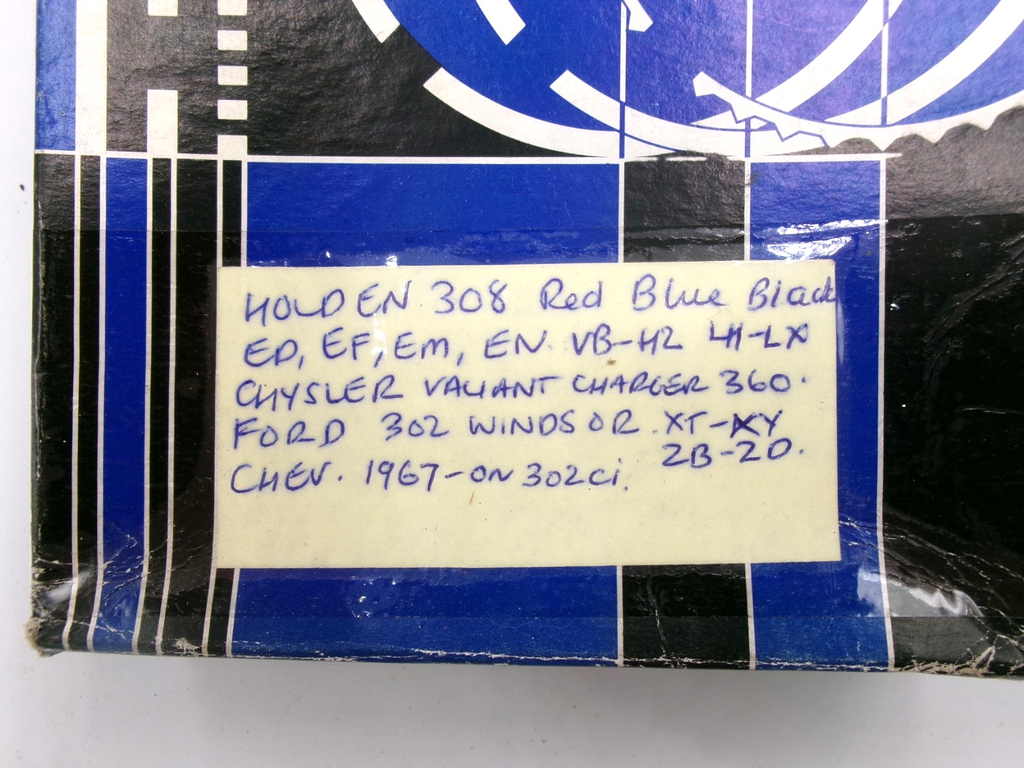 HOLDEN 308 Red Blue Black
ED, EF, Em, EN. VB-HZ 4H-LX
CHYSLER VALIANT CHARGER 360.
FORD 302 WINDSOR. XT-XY
ZB-ZD.
CHEV. 1967-ON 302ci.